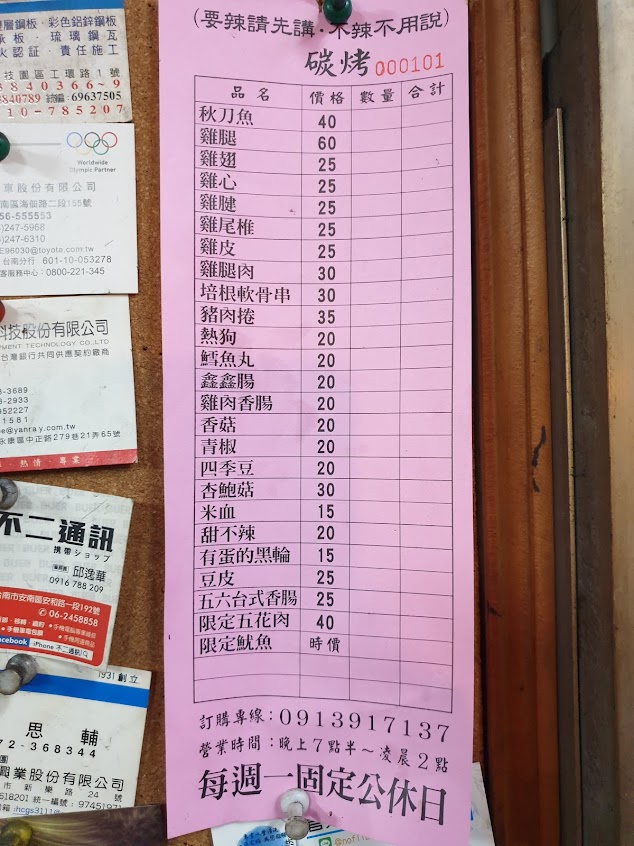 層鋼板·彩色鋁鋅鋼板
承板·琉璃鋼瓦
火認証·責任施工
技園區工環路1號
3840366~9
3840789 統編:69637505
10-785207
Worldwide
Olympic Partner
車股份有限公司
南區海佃路二段155號
56-555553
)247-5968
)247-6310
E96030@toyota.com.tw
台南分行 601-10-053278
客服務中心:0800-221-345
科技股份有限公司
PMENT TECHNOLOGY CO.,LTD
台灣銀行共同供應契約廠商
3-3689
3-2933
952227
1581
ee@yanray.com.tw
永康區中正路279巷21弄65號
熱情 專業
不二通訊
携帶ショップ
邱逸華
0916 788 209
台南市安南區安和路一段192號
06-2458858
facebook
iPhone 不二通訊
1931創立
思輔
72-368344
興業股份有限公司
市新樂路24號
618201 統一編號:97451971
箱:ihcgs3111@
(要辣請先講·不辣不用說)
碳烤 000101
品名 價格 數量 合計
秋刀魚 40
雞腿 60
雞翅 25
雞心 25
雞腱 25
雞尾椎 25
雞皮 25
雞腿肉 30
培根軟骨串 30
豬肉捲 35
熱狗 20
鱈魚丸 20
鑫鑫腸 20
雞肉香腸 20
香菇 20
青椒 20
四季豆 20
杏鮑菇 30
米血 15
甜不辣 20
有蛋的黑輪 15
豆皮 25
五六台式香腸 25
限定五花肉 40
限定魷魚 時價
訂購專線:0913917137
營業時間:晚上7點半～凌晨2點
每週一固定公休日